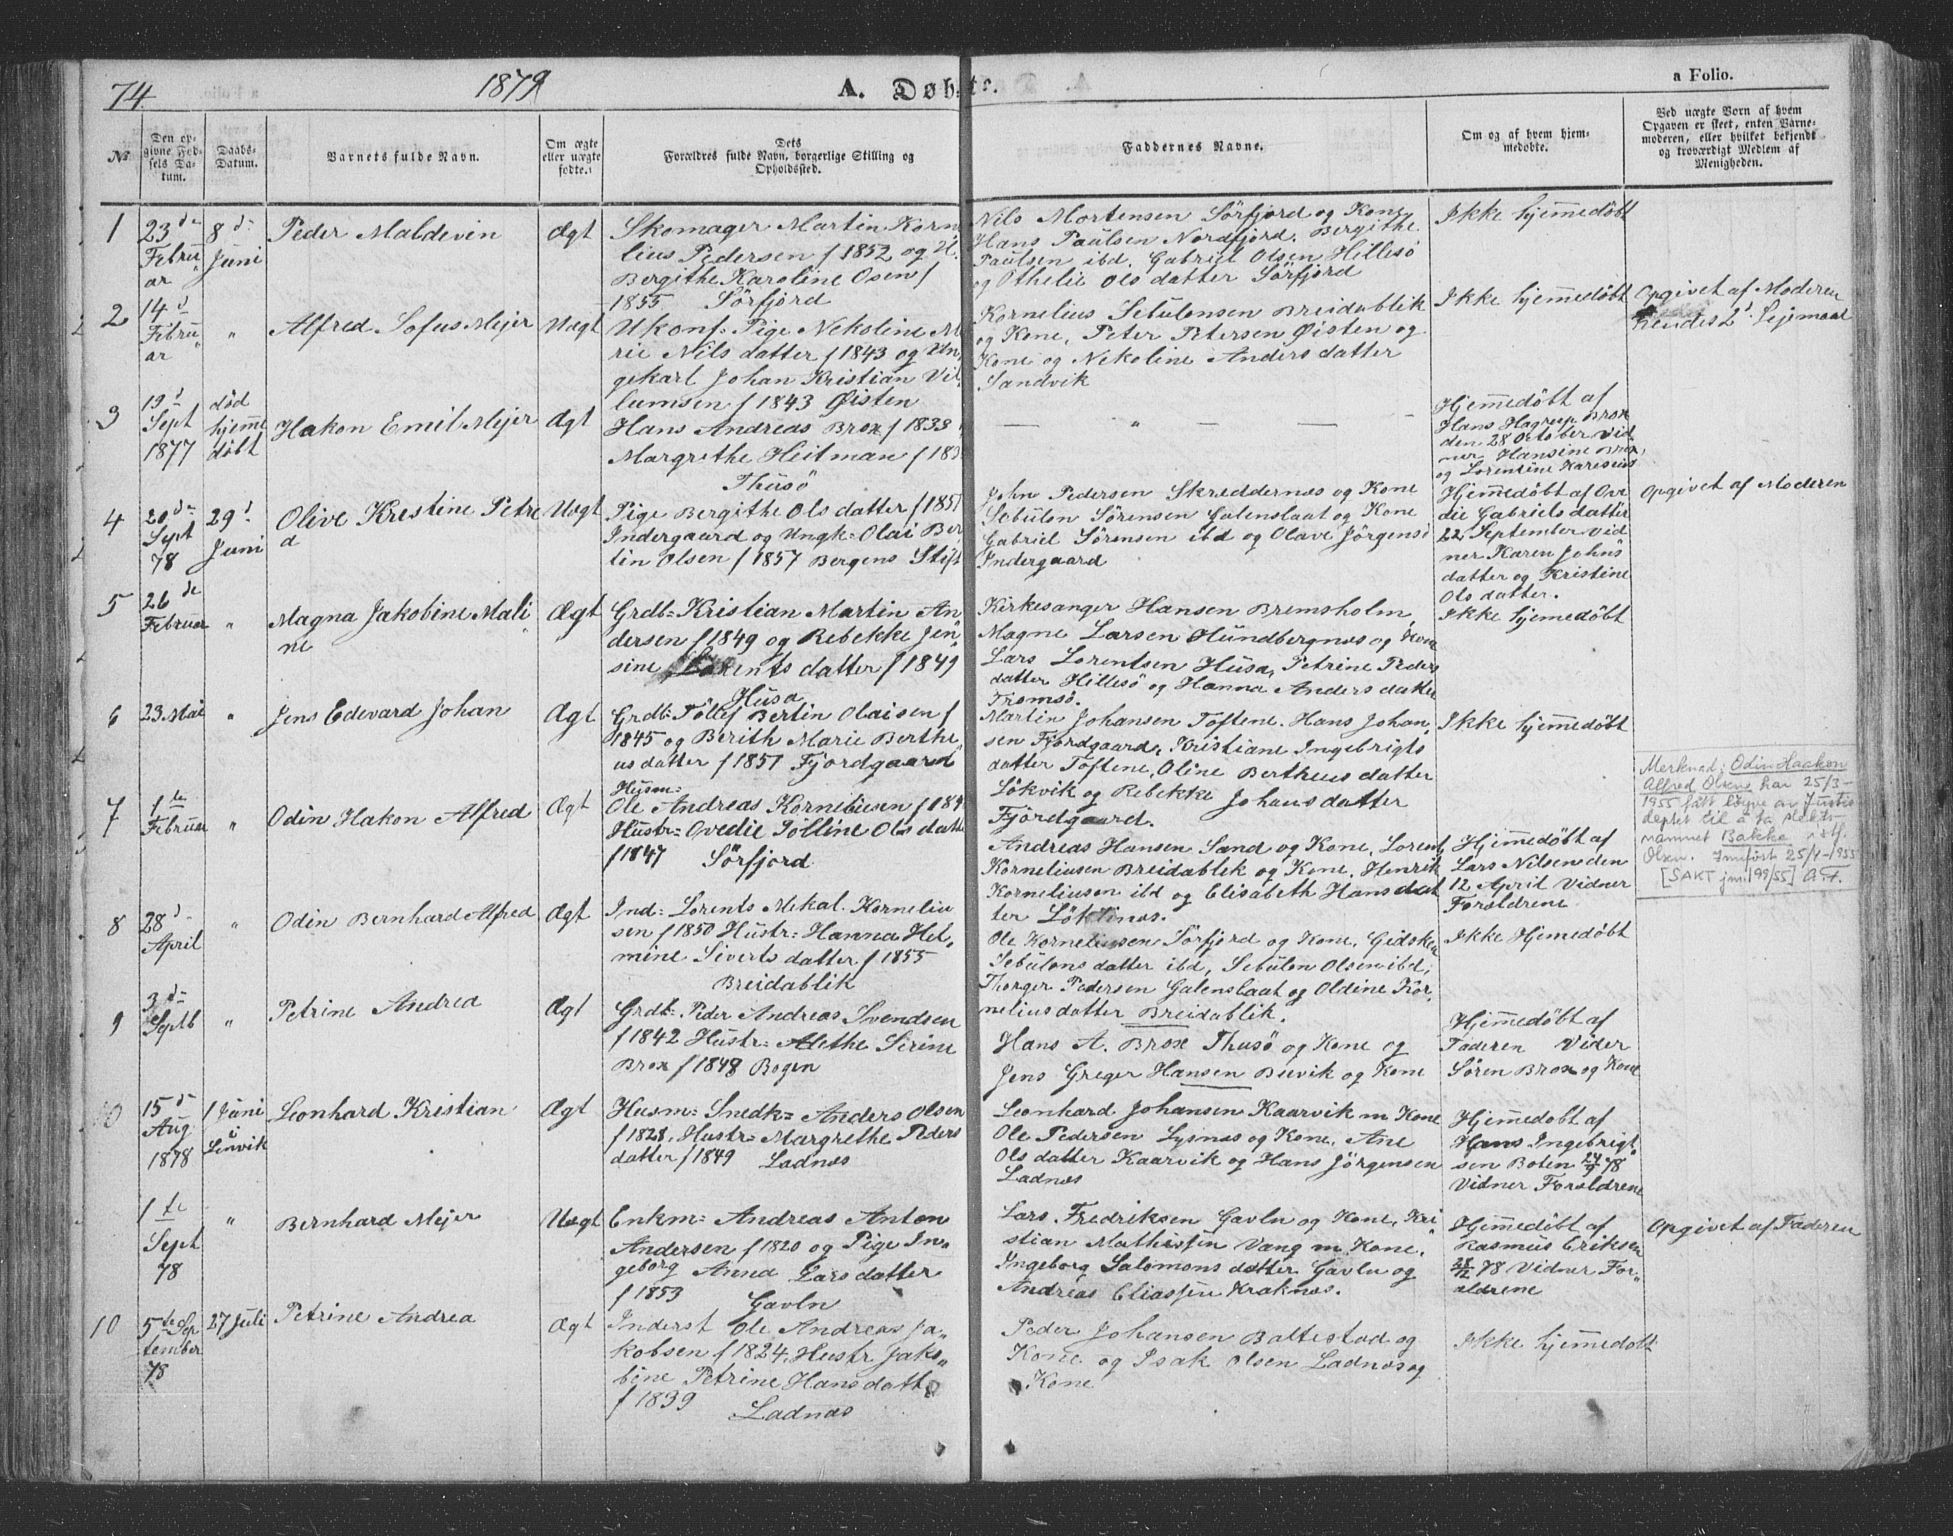 74.
1879
A. Døbte.
a Folio.
No
Den opgivne Fødsels Datum.
Daabs-Datum.
Barnets fulde Navn.
Om ægte eller uægte fødte.
Dets Forældres fulde Navn, borgerlige Stilling og Opholdssted.
Faddernes Navne.
Om og af hvem hjemmedøbte.
Ved uægte Børn af hvem Opgaven er skeet, enten Barnemoderen, eller hvilket bekjendt og troværdigt Medlem af Menigheden.
1
23de
Februar
8d
Juni
Peder Maldevin
Ægt
Skomager Martin Korne
lius Pedersen f 1852 og H.
Bergithe Karoline Osen f
1855 Sörfjord
Nils Mortensen Sörfjord og Kone,
Hans Paulsen Nordfjord. Bergithe
Paulsen ibd. Gabriel Olsen Hillesö
og Othelie Ols datter Sörfjord
Ikke hjemedöbt
2
14d
Februar
"
Alfred Sofus Mejer
Uægt
Ukonf= Pige Nekoline M
rie Nils datter f 1843 og Un,
gekarl Johan Kristian Vil
lumsen f 1843 Øisten
Kornelius Sebulonsen Breidablik
og Kone, Peter Petersen Øisten og
Kone og Nekoline Anders datter
Sandvik
Ikke hjemedöbt
Opgivet af Moderen
hendes 2d Lejrmaal
3
19d
Sept
1877
död
hjemme
döbt
Hakon Emil Mejer
Ægt
Hans Andreas Brox f 1833
Margrethe Heitman f 183
Thusö
Hjemmedöbt af
Hans Hagrup Brox
den 28 October Vid
ner Hansine Brox,
og Lorentine
4
20de
Sept
78
29d
Juni
Olive Kristine Petre
a
Uægt
Pige Bergithe Ols datter f 1851
Indergaard og Ungk= Olai Ber
tin Olsen f 1857 Bergens Stift
John Pedersen Skreddernæs og Kone
Sebulon Sörensen Galenslaat og Kone
Gabriel Sörensen ibd og Olave Jörgensd
Indergaard
Hjemmedöbt af Ove
die Gabriels datter
22 September Vid
ner Karen Johns
datter og Kristine
Ols datter.
Opgivet af Moderen
5
26de
Februar
"
Magna Jakobine Mali
ne
Ægt
Grdb= Kristian Martin An
dersen f 1849 og Rebekke Jen
sine Lorents datter f 1849
Husa
Kirkesanger Hansen Bremsholm,
Magne Larsen Hundbergnæs og Kone
Lars Lorentsen Husa, Petrine Peders
datter Hillesö og Hanna Anders datter
Tromsö.
Ikke hjemedöbt
6
23 Mai
"
Jens Edevard Johan
Ægt
Grdb= Tollef Bertin Olaisen f
1845 og Berith Marie Berthe
us datter f 1851 Fjordgaard
Martin Johansen Toftene. Hans Johan,
sen Fjordgaard, Kristiane Ingebrigts
datter Toftene, Oline Bertheus datter
Lökvik og Rebekke Johans datter
Fjordgaard.
Ikke hjemedöbt
7
1te
Februar
"
Odin Hakon Alfred
Ægt
Husm=
Ole Andreas Korneliusen f 184
Hustr= Ovedie Polline Ols datt
f 1847 Sörfjord
Andreas Hansen Sand og Kone, Lorents
Korneliusen Breidablik og Kone, Henrik
Korneliusen ibd og Elisabeth Hans dat
ter Löktinæs.
Hjemmedöbt af
Lars Nilsen den
12 April Vidner
Foraldrene
Merknad: Odin Haakon
Alfred Olsen har 25/3-
1955 fått løyve av Justis
deptet til å ta slekts-
namnet Bakke i stf.
Olsen. Innført 25/4-1955
[SAKT jnr. 199/55] A.F.
8
28d
April
"
Odin Bernhard Alfred
Ægt
Ind= Lorents Mekal Korneliu
sen f 1850 Hustr= Hanna Hel,
mine Siverts datter f 1855
Breidablik
Ole Korneliusen Sörfjord og Kone, Gidsken
Sebulons datter ibd, Sebulon Olsen ibd,
Thorger Pedersen Galenslaat og Oldine Kor,
nelius datter Breidablik.
Ikke Hjemedöbt
9
3de
Septb
"
Petrine Andrea
Ægt
Grdb= Peder Andreas Svendsen
f 1842 Hustr= Alethe Serine
Brox f 1848 Bogen
Hans A. Brox Thusö og Kone og
Jens Greger Hansen Buvik og Kone
Hjemmedöbt af
Faderen Vider
Sören Brox og Kone
10
15de
Aug
1878
1 Juni
i
Lenvik
Leonhard Kristian
Ægt
Husm= Snedk= Anders Olsen
f 1828, Hustr= Margrethe Peders
datter f 1849 Ladnæs
Leonhard Johansen Kaarvik m Kone
Ole Pedersen Lysnæs og Kone, Ane
Ols datter Kaarvik og Hans Jörgensen
Ladnæs
Hjemmedöbt af
Hans Ingebrigt
sen Boten 24/9 78
Vidner Foraldrene
1te
Sept
78
"
Bernhard Mejer
Uægt
Enkm= Andreas Anton
Andersen f 1820 og Pige In,
geborg Anna Lars datter
f 1853 Gavln
Lars Fredriksen Gavln og Kone, Kri
stian Mathissen Vang m Kone.
Ingeborg Salomons datter Gavln og
Andreas Eliassen Kraknæs.
Hjemmedöbt af
Rasmus Eriksen
78 Vidner For,
aldrene
Opgivet af Faderen
10
5te Sep
tember
78
27 Juli
Petrine Andrea
Ægt
Inderst Ole Andreas Ja,
kobsen f 1824, Hustr Jako,
bine Petrine Hans datt
f 1839 Ladnæs
Peder Johansen Baltestad og
Kone og Isak Olsen Ladnæs og
Kone
Ikke hjemmedöbt